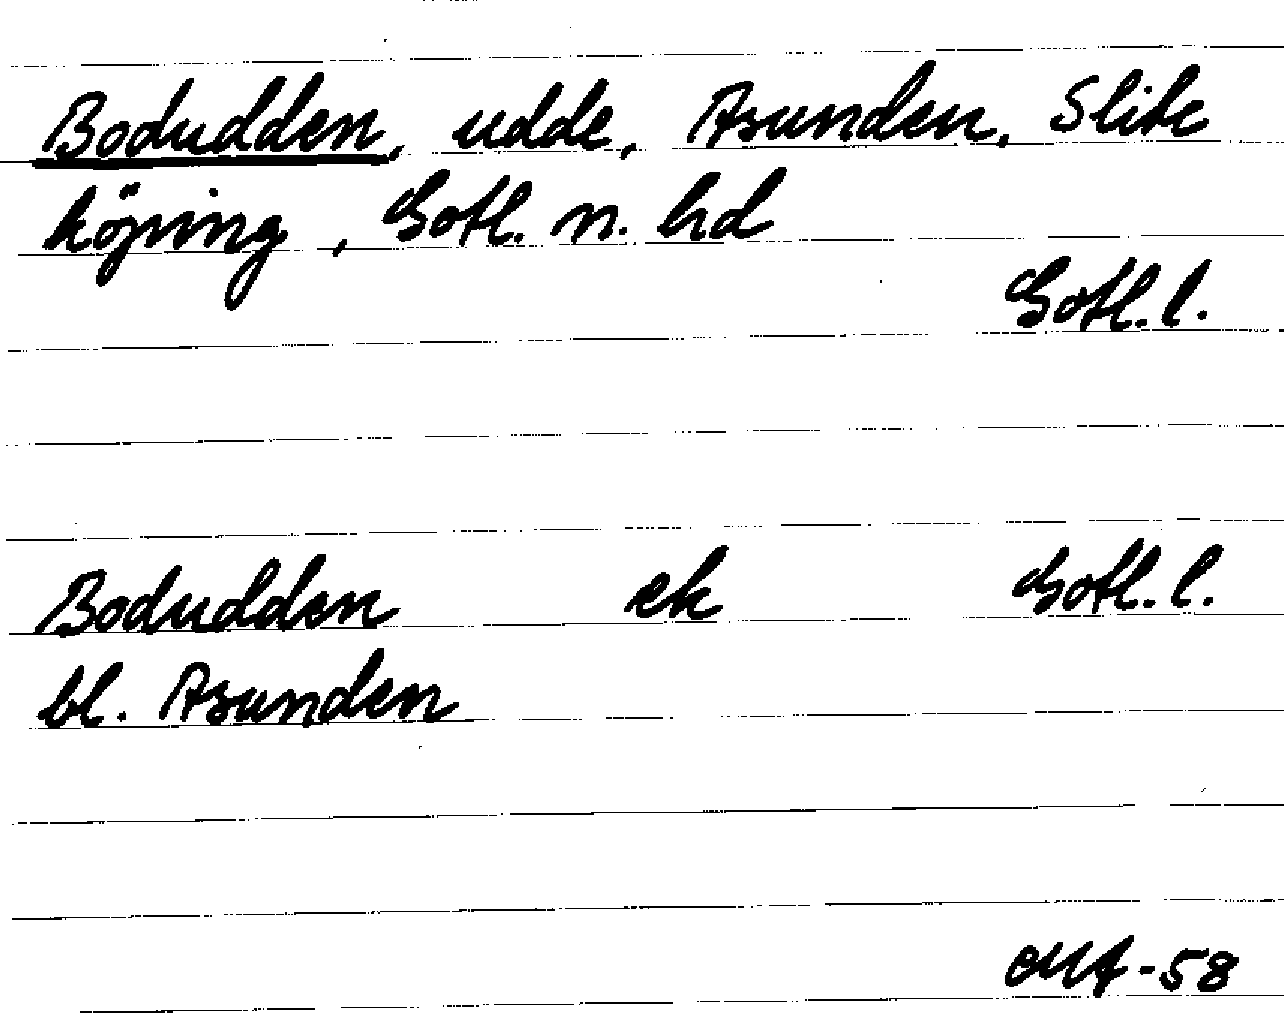 Bodudden, udde, Asunden, Slite
köping, Gotl. n. hd
Gotl. l.
Bodudden ek Gotl. l.
bl. Asunden